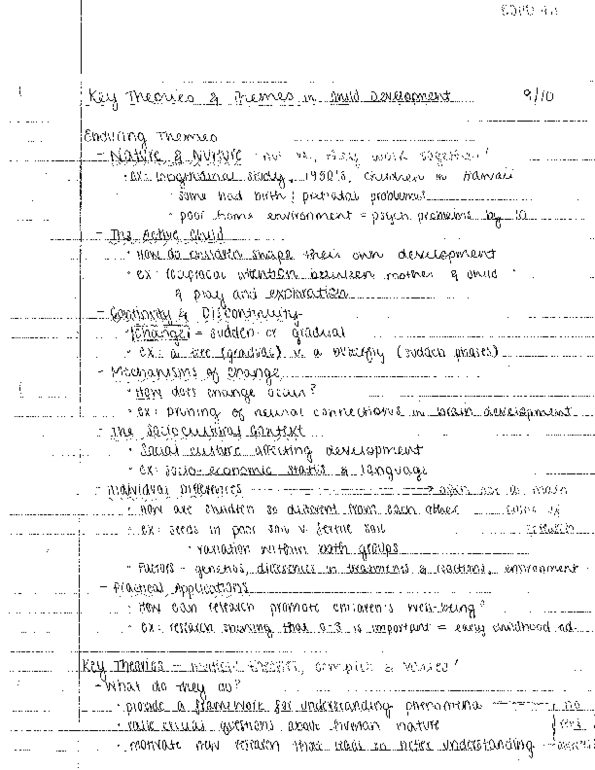 Key Theories & Themes in Child Development 9/10
Enduring Themes
- Nature & Nurture - not vs, they work together!
· ex: longitudinal study, 1950's, children in Hawaii
· some had birth / prenatal problems
· poor home environment = psych problems by 10
- The Active Child
· How do children shape their own development
· ex: reciprocal attention between mother & child
& play and exploration
- Continuity & Discontinuity
· Change - sudden or gradual
· ex: a tree (gradual) v. a butterfly (sudden phases)
- Mechanisms of Change
· How does change occur?
· ex: pruning of neural connections in brain development
- The Sociocultural Context
· Social culture affecting development
· ex: socio-economic status & language
- Individual Differences → main
· How are children so different from each other
· ex: seeds in poor soil v. fertile soil research
· variation within both groups
· Factors - genetics, differences in treatments & reactions, environment
- Practical Applications
· How can research promote children's well-being?
· ex: research showing that 0-3 is important = early childhood ed.
Key Theories -
- What do they do?
· provide a framework for understanding phenomena
· raise crucial questions about human nature
· motivate new research that leads to better understanding